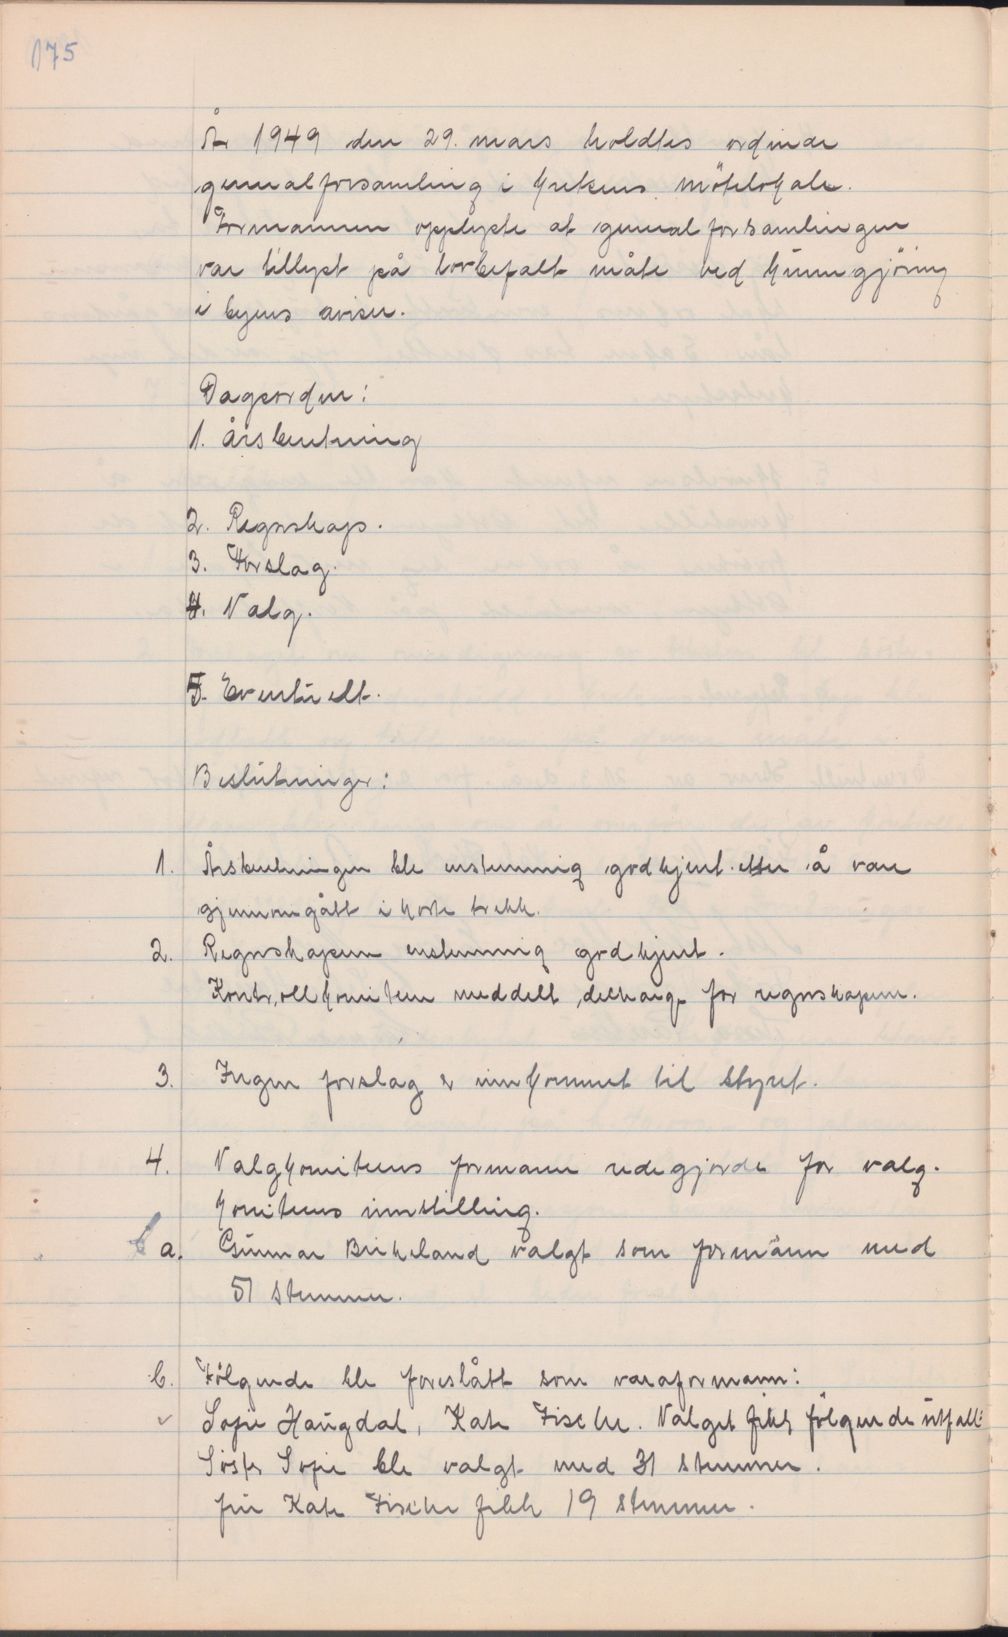 175
År 1949 den 29. mars holdtes ordinær
generalforsamling i krekens møtelokale.
Formannen opplyste at generalforsamlingen
var tillyst på lovbefalt måte ved kunngjøring
i byens aviser.
Dagsorden:
1. Årsberetning
2. Regnskap.
3. Forslag.
4. Valg.
5. Eventuelt.
Beslutninger:
1. Årsberetningen ble enstemmig godkjent etter å være
gjennomgått i korte trekk.
2. Regnskapene enstemmig godkjent.
Kontrollkomiteen meddelt decharge for regnskapene.
3. Ingen forslag er innkommet til styret.
4. Valgkomiteens formann redegjorde for valg-
komiteens innstilling.
a. Gunnar Birkeland valgt som formann med
51 stemmer.
b. Følgende ble foreslått som varaformann:
Sofie Haugdal, Kate Fischer. Valget fikk følgende utfall:
Søster Sofie ble valgt med 31 stemmer.
fru Kate Fischer fikk 19 stemmer.